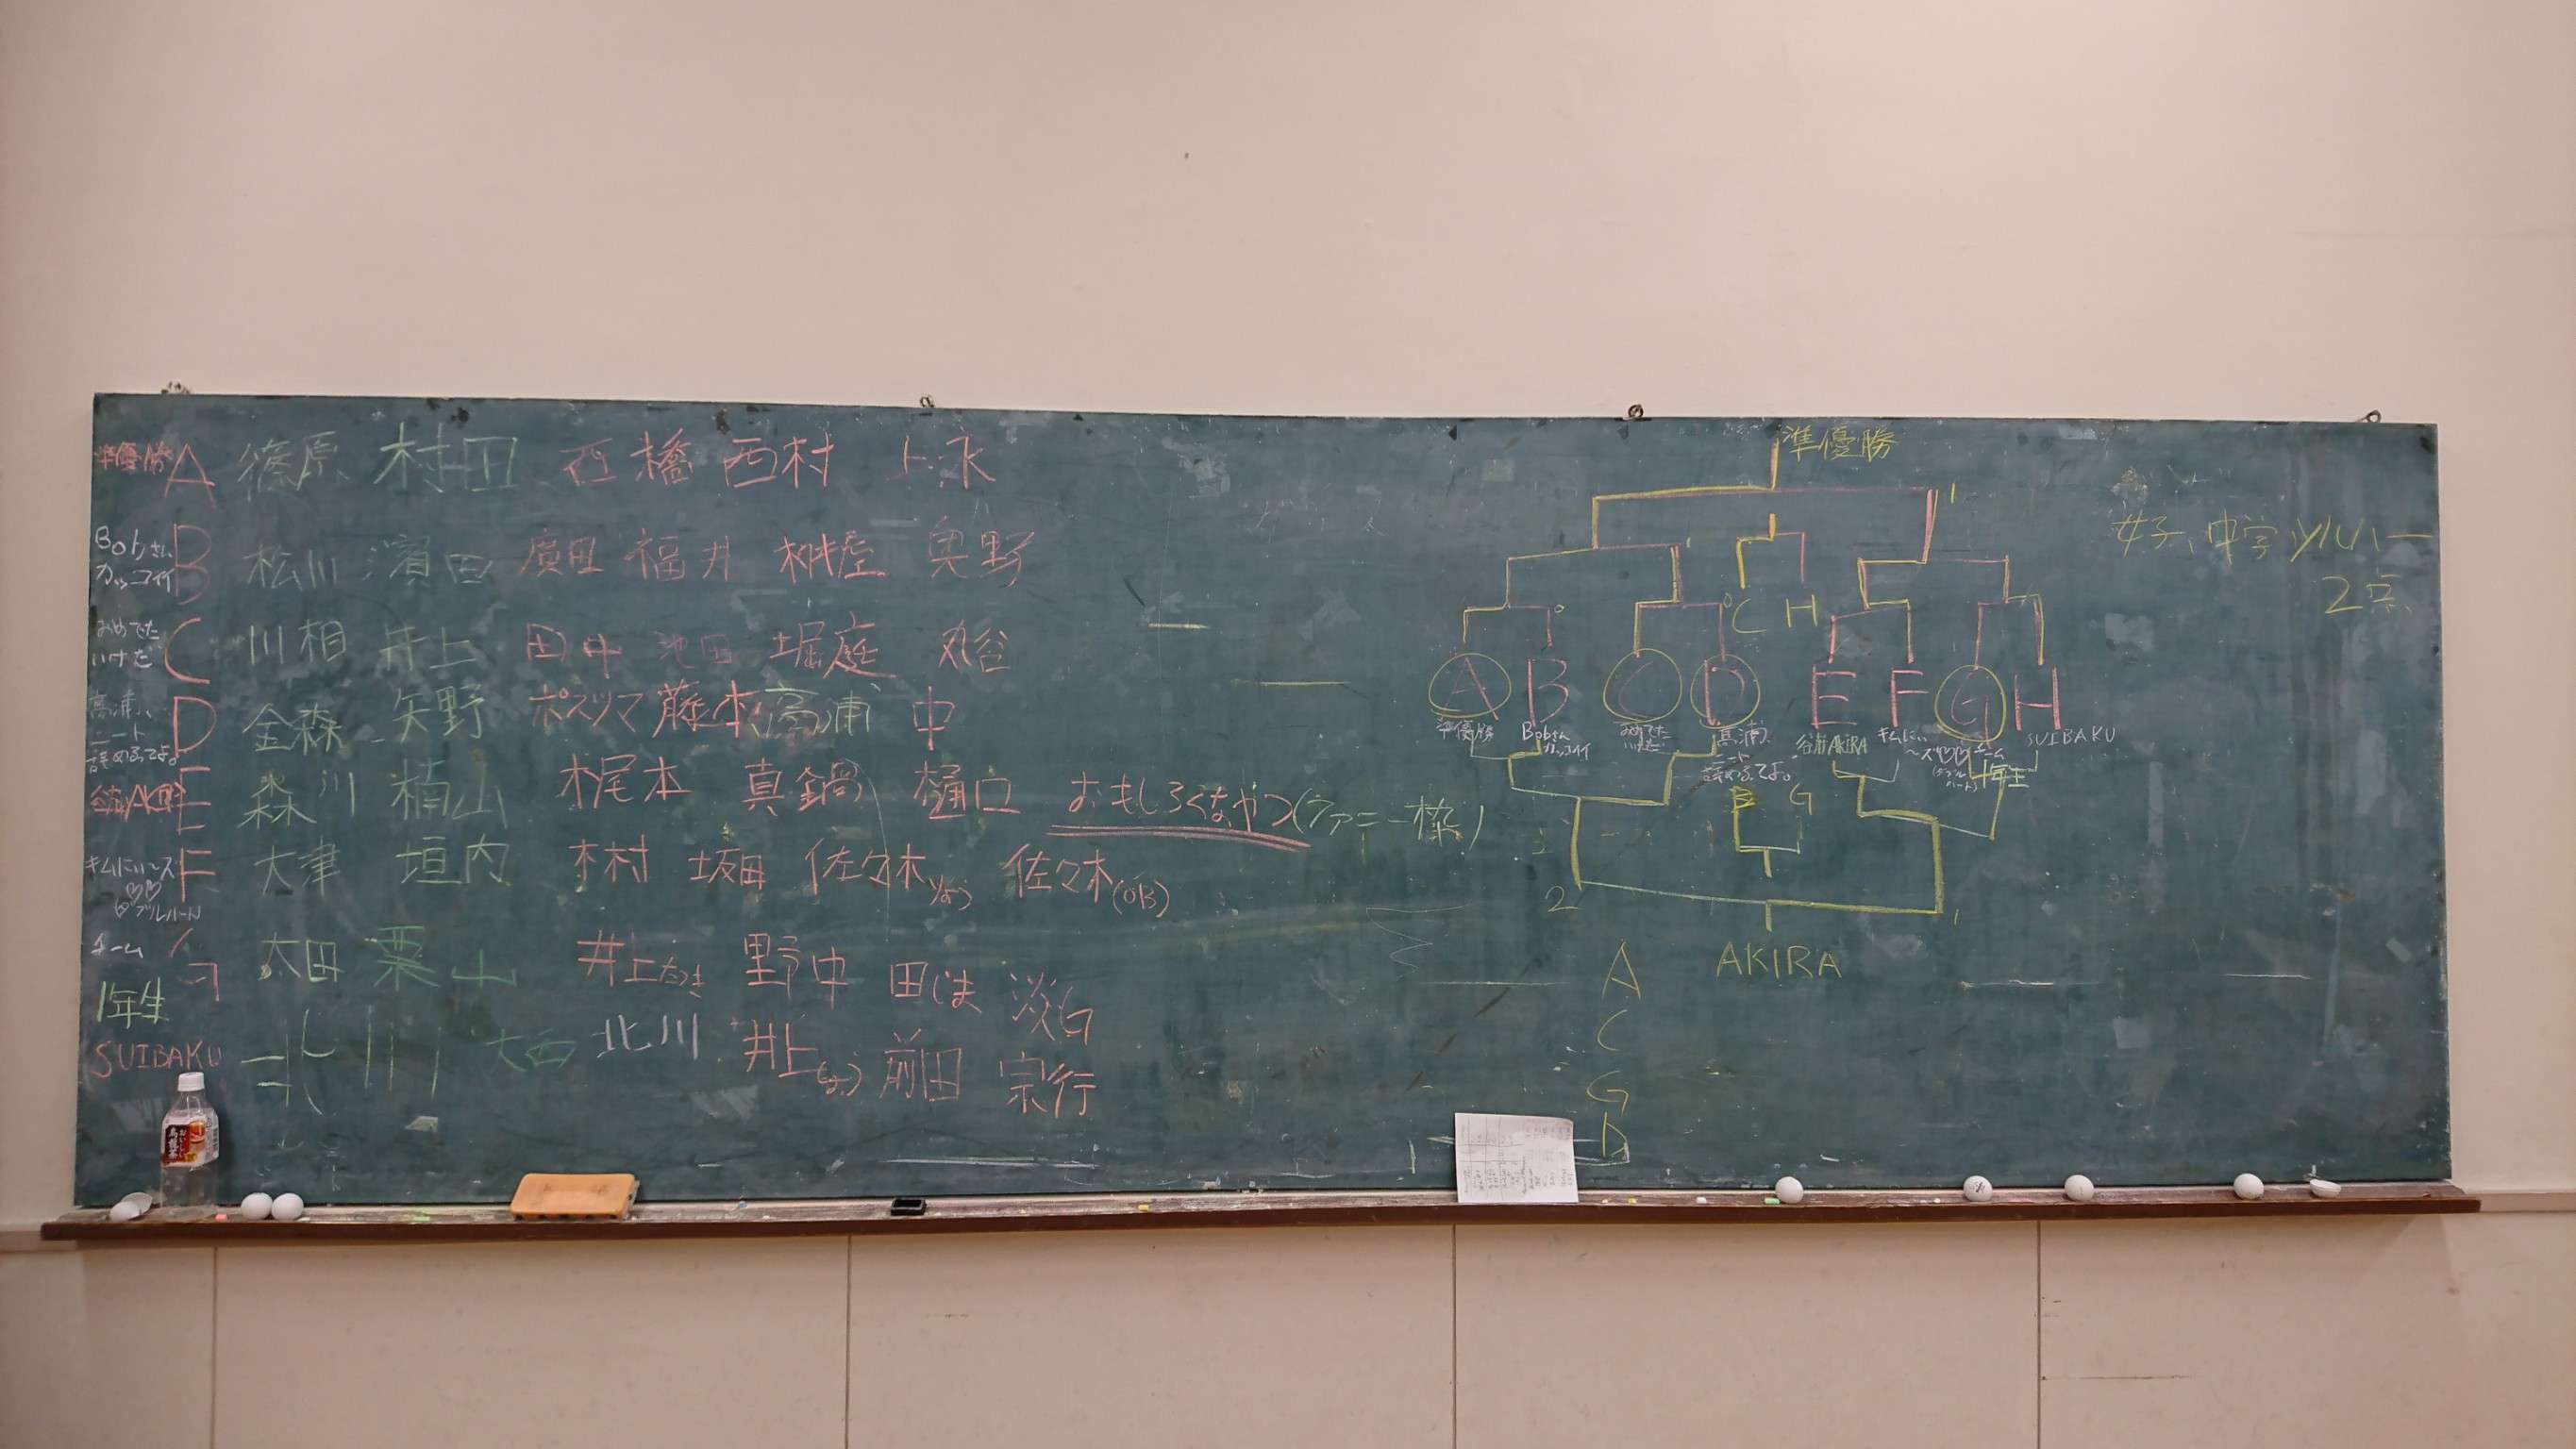 準優勝 A 篠原 村田 西橋 西村
Bobさんカッコイイ B 松川 濱田 廣田 福井 桝屋 奥野
おめでたいけだ C 川相 井上 田中 池田 堀庭 丸谷
高浦、ニート辞めるってよ。 D 金森 矢野 ポスツマ 藤本 高浦 中
谷浦AKIRA E 森川 楠山 梶本 真鍋 樋口 おもしろくなやつ(ファニー枠)
キムにぃ〜ズ♡♡(ダブルハート) F 大津 垣内 木村 坂田 佐々木 佐々木(OB)
チーム1年生 G 太田 栗山 井上たつき 野中 田じま 淡白
SUIBAKU 北川 大西 北川 井上(しょう) 前田 宗行
準優勝
1
C H
A B C D E F G H
準優勝 Bobさんカッコイイ おめでたいけだ 高浦、ニート辞めるってよ。 谷浦AKIRA キムにぃ〜ズ♡♡(ダブルハート) チーム1年生 SUIBAKU
B G
2 1
AKIRA
A
C
G
D
女子、中学シルバー
2点